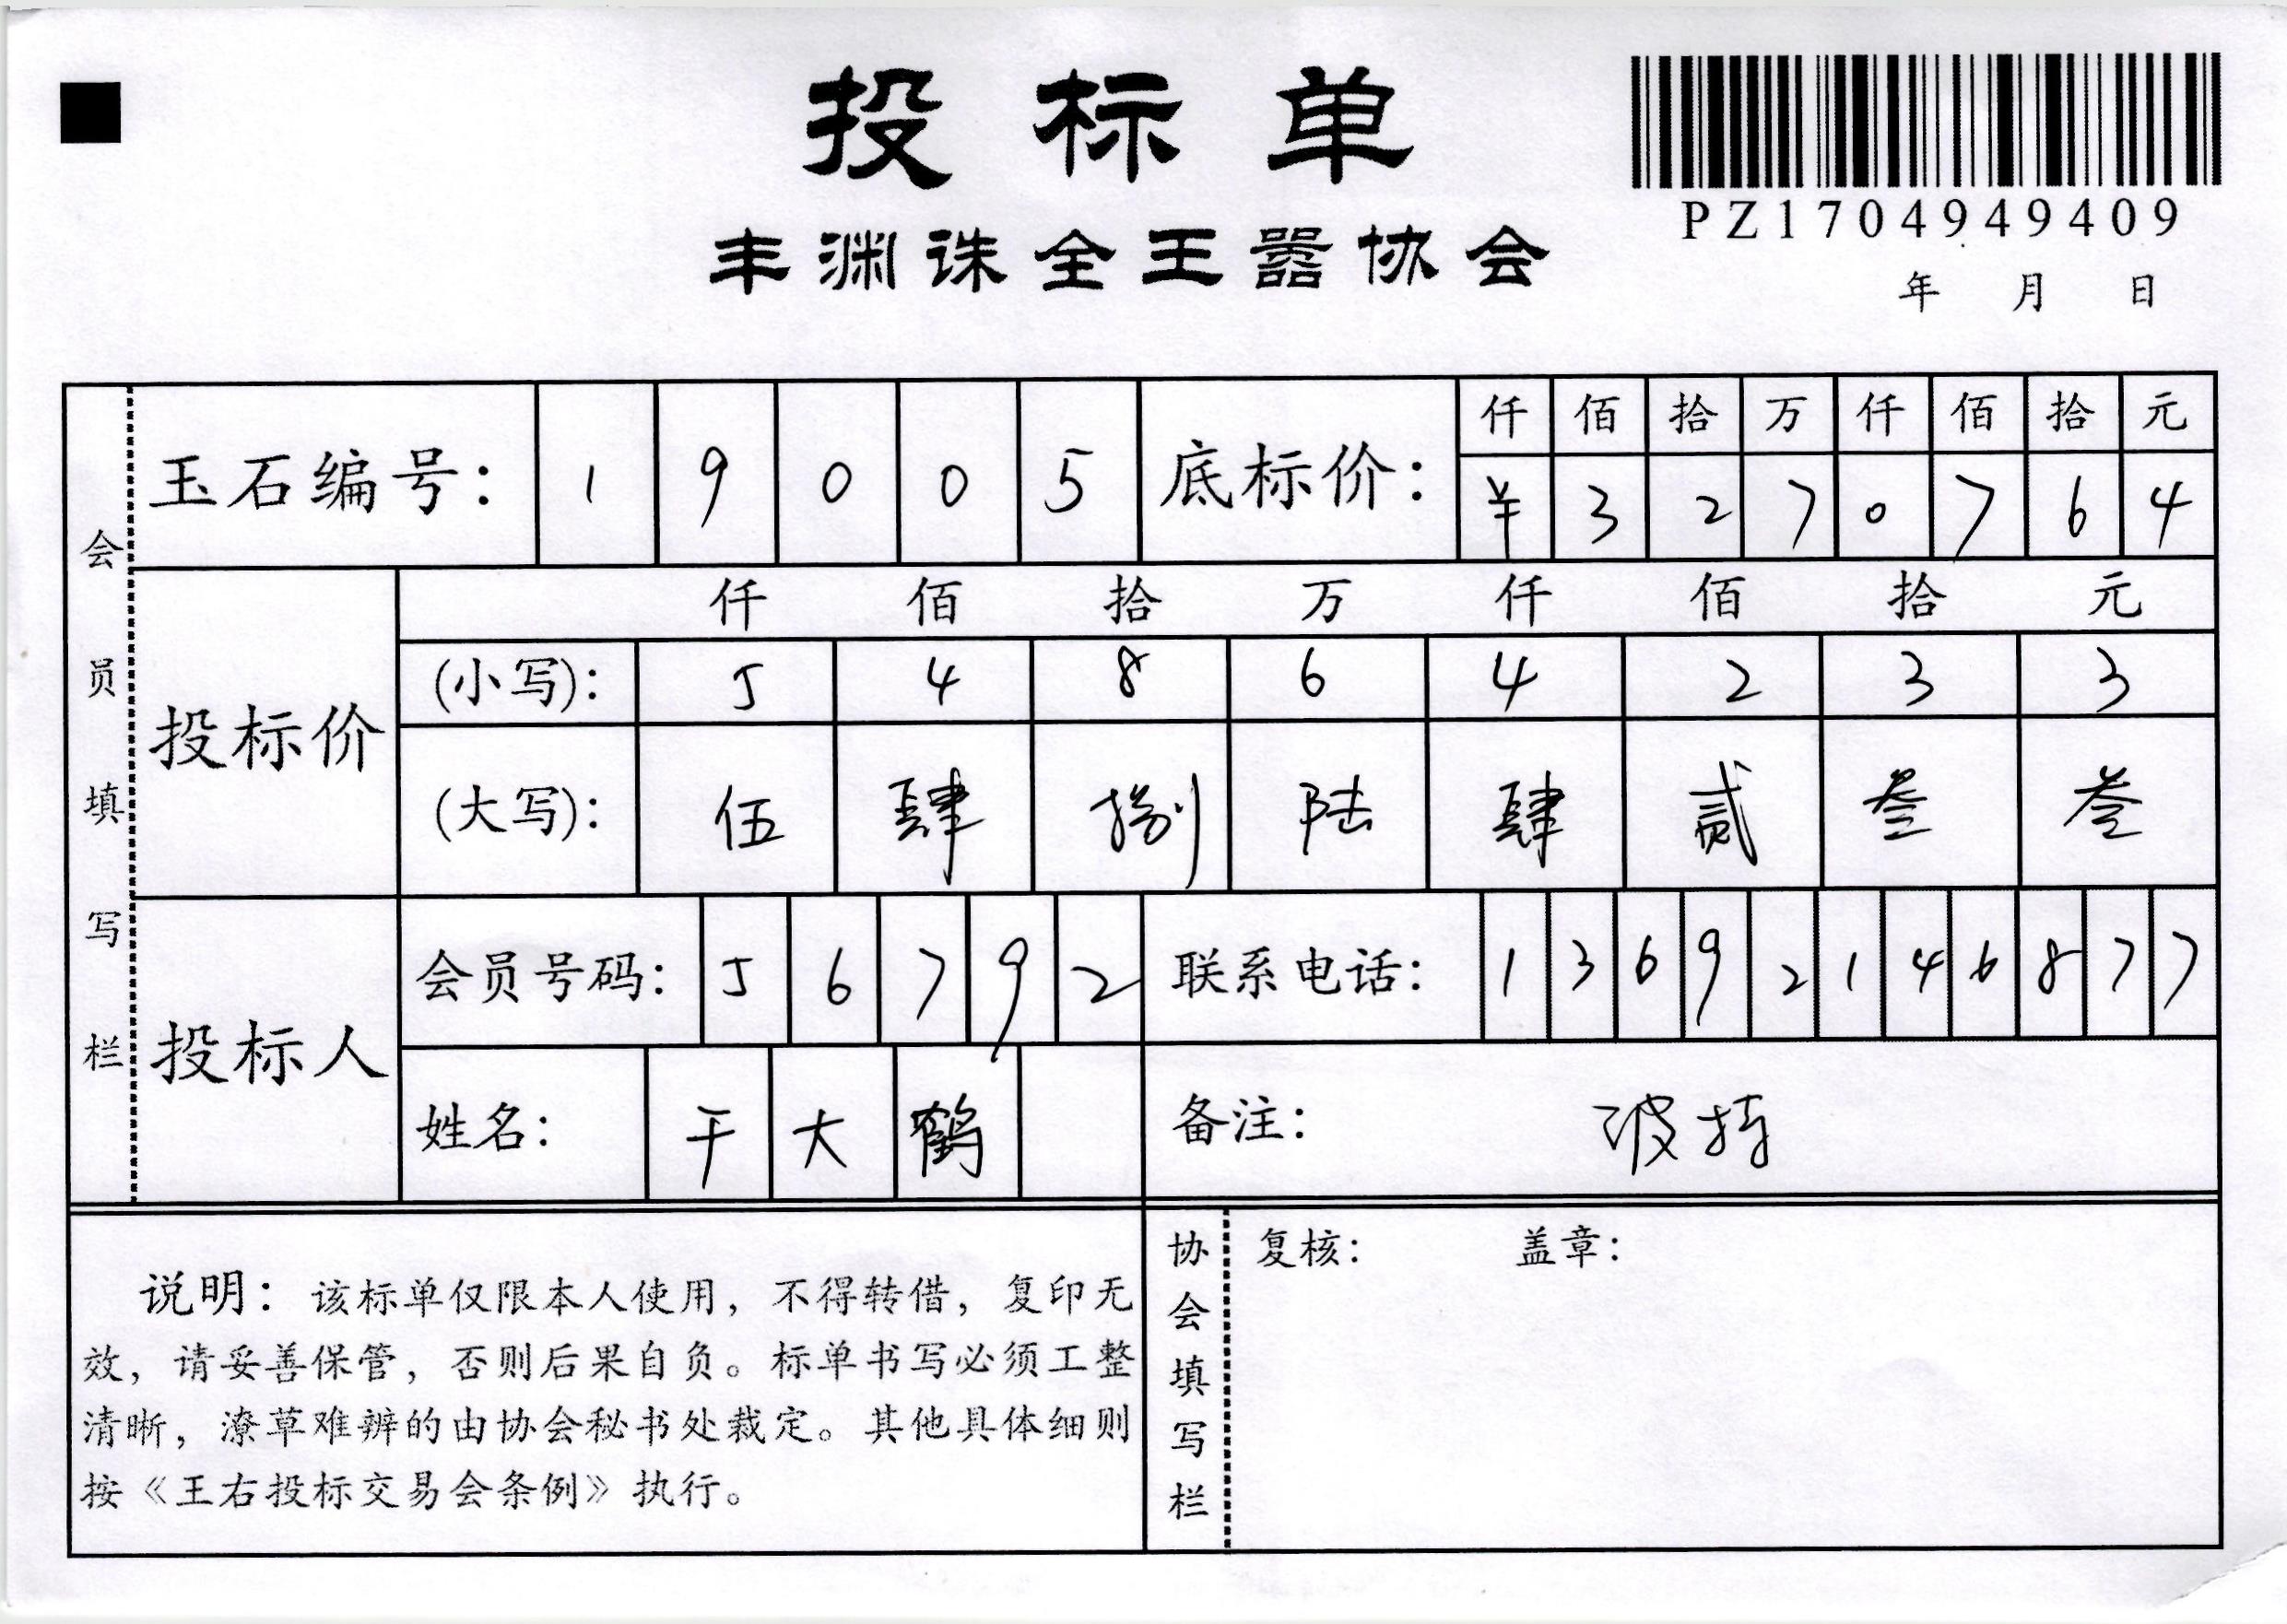 投标单
丰渊诛全王嚣协会
PZ1704949409
年 月 日
会员填写栏
玉石编号: 1 9 0 0 5
底标价: 仟 佰 拾 万 仟 佰 拾 元
¥ 3 2 7 0 7 6 4
投标价
仟 佰 拾 万 仟 佰 拾 元
(小写): 5 4 8 6 4 2 3 3
(大写): 伍 肆 捌 陆 肆 贰 叁 叁
投标人
会员号码: 5 6 7 9 2
联系电话: 1 3 6 9 2 1 4 6 8 7 7
姓名: 干 大 鹤
备注:
说明: 该标单仅限本人使用, 不得转借, 复印无
效, 请妥善保管, 否则后果自负。标单书写必须工整
清晰, 潦草难辨的由协会秘书处裁定。其他具体细则
按《王右投标交易会条例》执行。
协会填写栏
复核: 盖章: